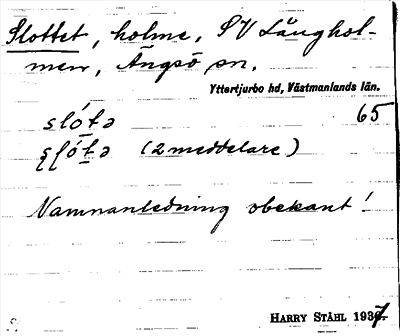 Slottet, holme, SV Långhol-
men, Ängsö sn.
Yttertjurbo hd, Västmanlands län.
65
slo̱´tə
ʂɭo̱´tə (2 meddelare)
Namnanledning obekant!
HARRY STÅHL 1937.